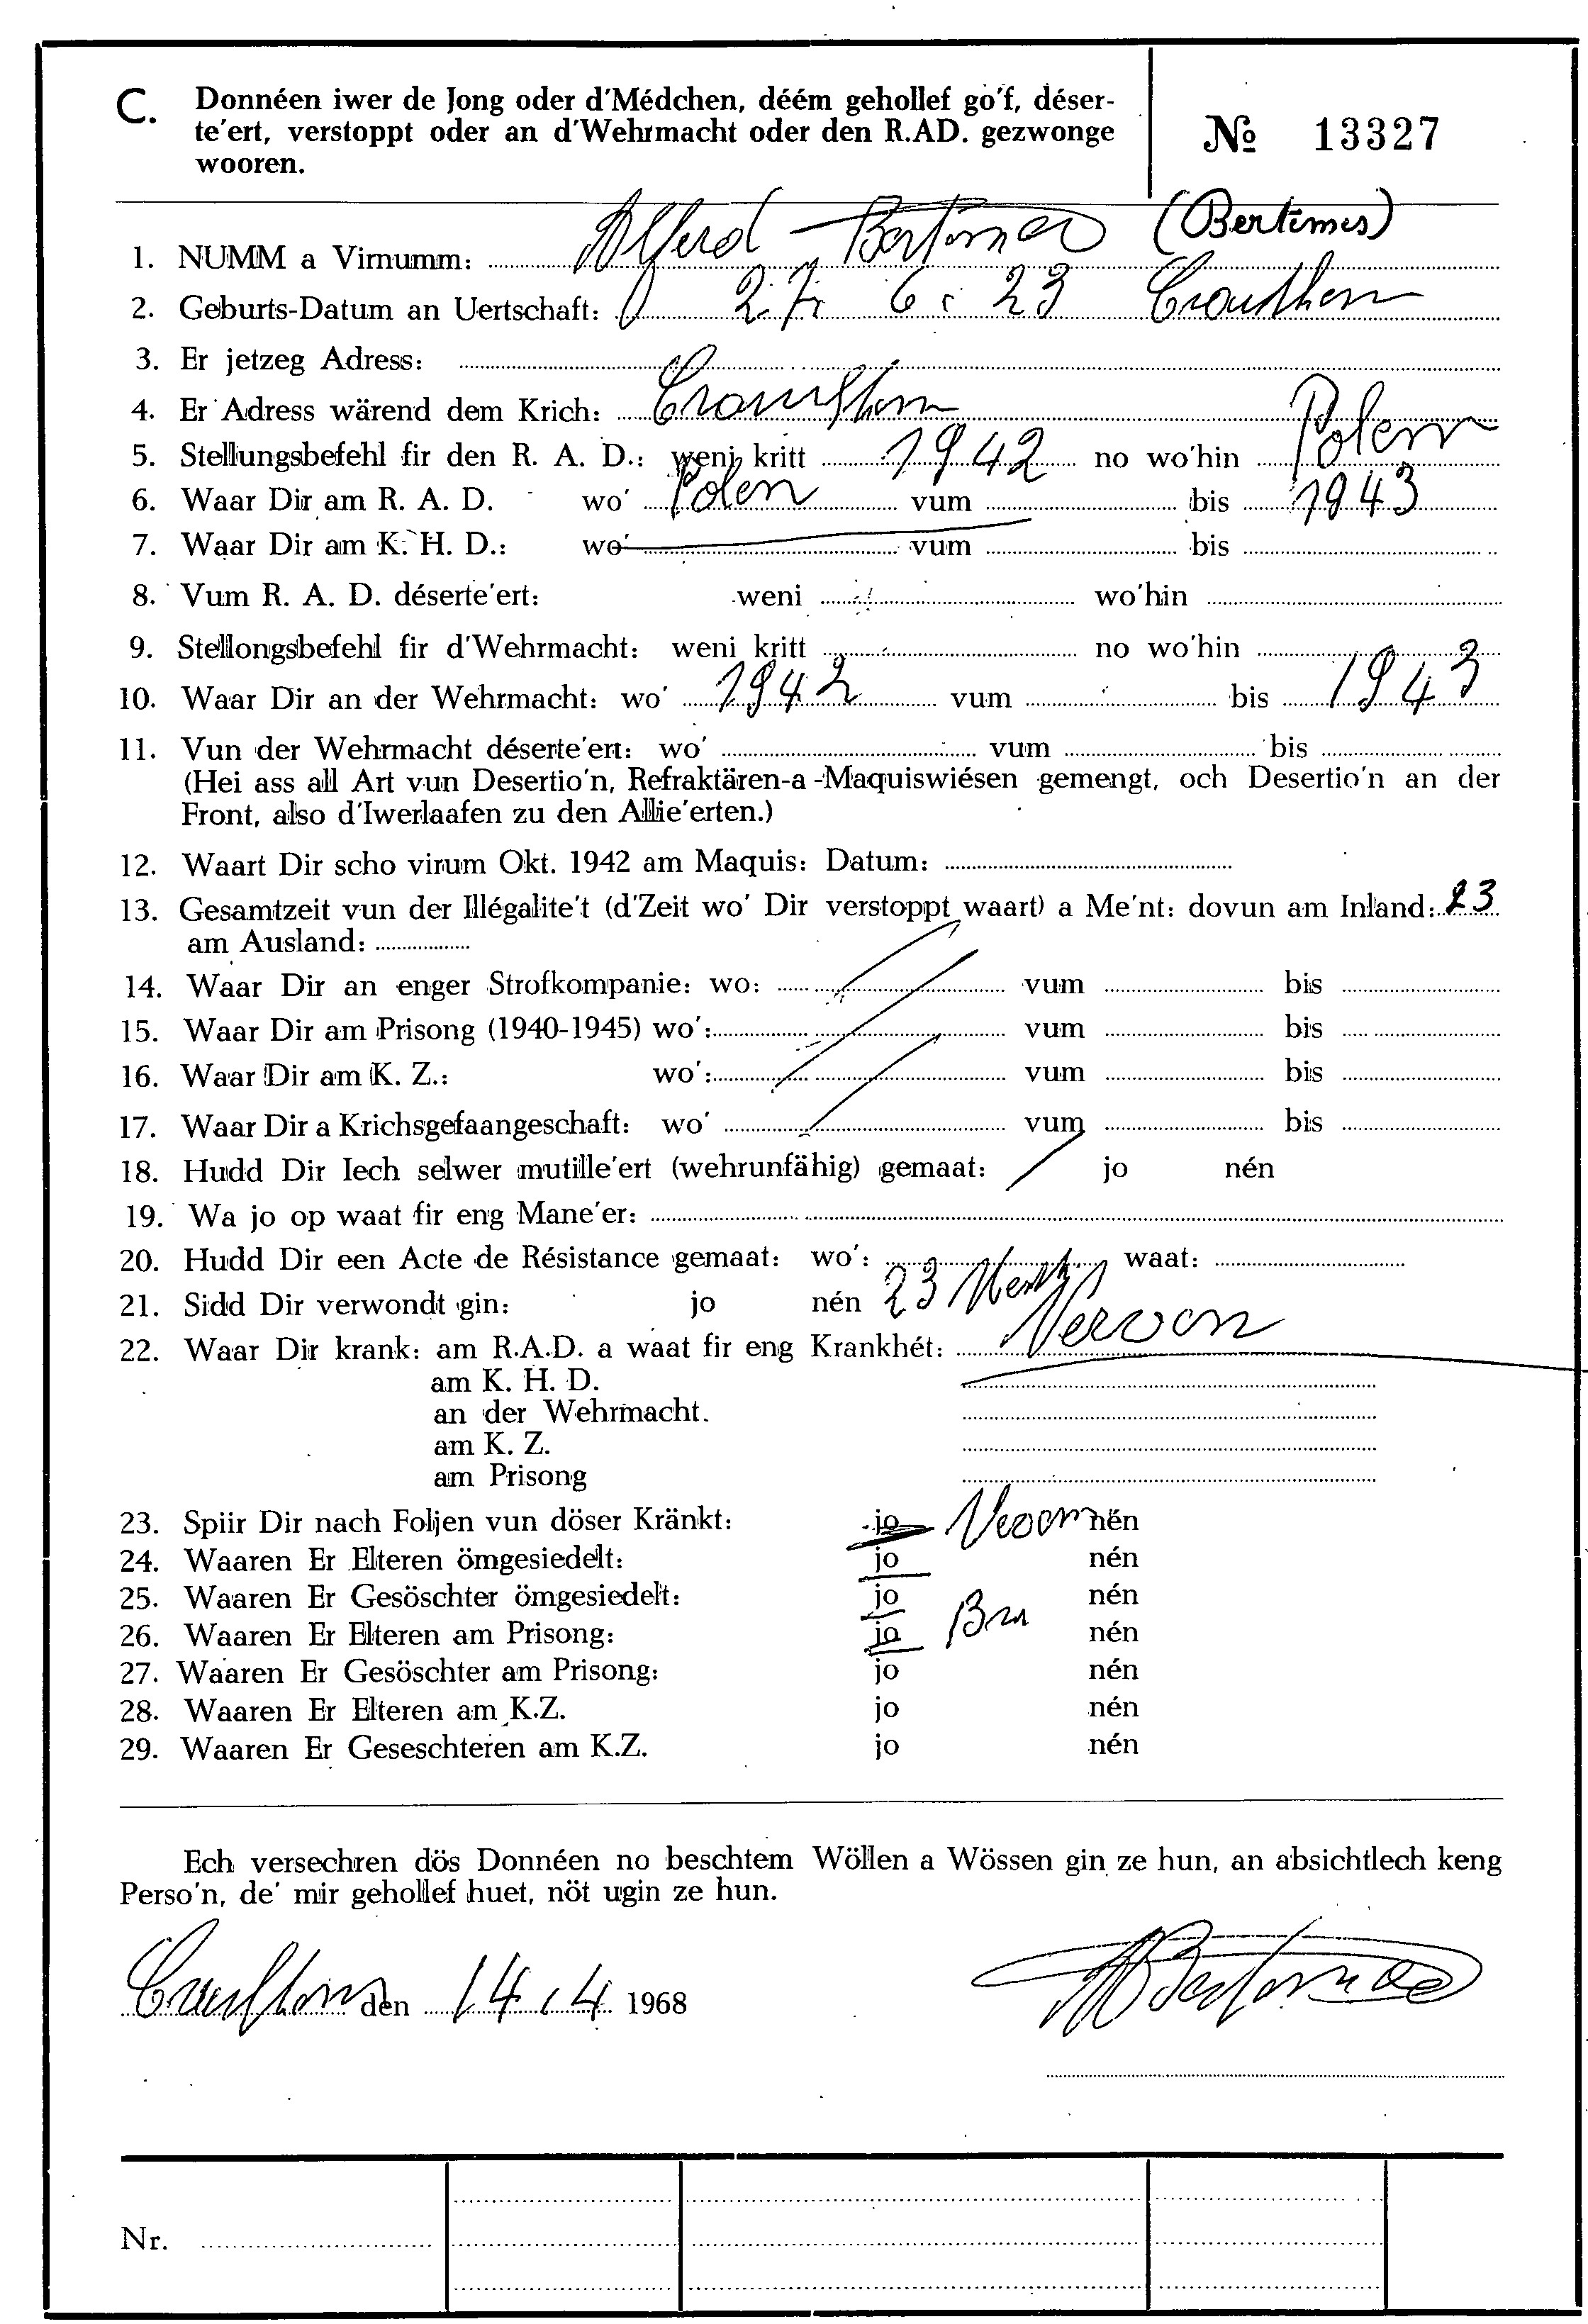 C. Donnéen iwer de Jong oder d'Médchen, déém gehollef go'f, déser-
te'ert, verstoppt oder an d'Wehrmacht oder den R.AD. gezwonge
wooren.
№ 13327
1. NUMM a Virnumm: Alferd Bertimes (Bertemes)
2. Geburts-Datum an Uertschaft: 27. 6. 23 Crauthem
3. Er jetzeg Adress:
4. Er Adress wärend dem Krich: Crauthem
5. Stellungsbefehl fir den R. A. D.: weni kritt 1942 no wo'hin Polen
6. Waar Dir am R. A. D. wo' Polen vum bis 1943
7. Waar Dir am K. H. D.: wo' vum bis
8. Vum R. A. D. déserte'ert: weni wo'hin
9. Stellongsbefehl fir d'Wehrmacht: weni kritt no wo'hin
10. Waar Dir an der Wehrmacht: wo' 1942 vum bis 1943
11. Vun der Wehrmacht déserte'ert: wo' vum bis
(Hei ass all Art vun Desertio'n, Refraktären-a-Maquiswiésen gemengt, och Desertio'n an der
Front, also d'Iwerlaafen zu den Allie'erten.)
12. Waart Dir scho virum Okt. 1942 am Maquis: Datum:
13. Gesamtzeit vun der Illégalite't (d'Zeit wo' Dir verstoppt waart) a Me'nt: dovun am Inland: 23
am Ausland:
14. Waar Dir an enger Strofkompanie: wo: vum bis
15. Waar Dir am Prisong (1940-1945) wo': vum bis
16. Waar Dir am K. Z.: wo': vum bis
17. Waar Dir a Krichsgefaangeschaft: wo' vum bis
18. Hudd Dir Iech selwer mutille'ert (wehrunfähig) gemaat: jo nén
19. Wa jo op waat fir eng Mane'er:
20. Hudd Dir een Acte de Résistance gemaat: wo': waat:
21. Sidd Dir verwondt gin: jo nén 23
22. Waar Dir krank: am R.A.D. a waat fir eng Krankhét: Nerven
am K. H. D.
an der Wehrmacht.
am K. Z.
am Prisong
23. Spiir Dir nach Foljen vun döser Kränkt: jo nén
24. Waaren Er Elteren ömgesiedelt: jo nén
25. Waaren Er Gesöschter ömgesiedelt: jo nén
26. Waaren Er Elteren am Prisong: jo nén
27. Waaren Er Gesöschter am Prisong: jo nén
28. Waaren Er Elteren am K.Z. jo nén
29. Waaren Er Geseschteren am K.Z. jo nén
Ech versechren dös Donnéen no beschtem Wöllen a Wössen gin ze hun, an absichtlech keng
Perso'n, de' mir gehollef huet, nöt ugin ze hun.
Crauthem den 14.4 1968
Nr.